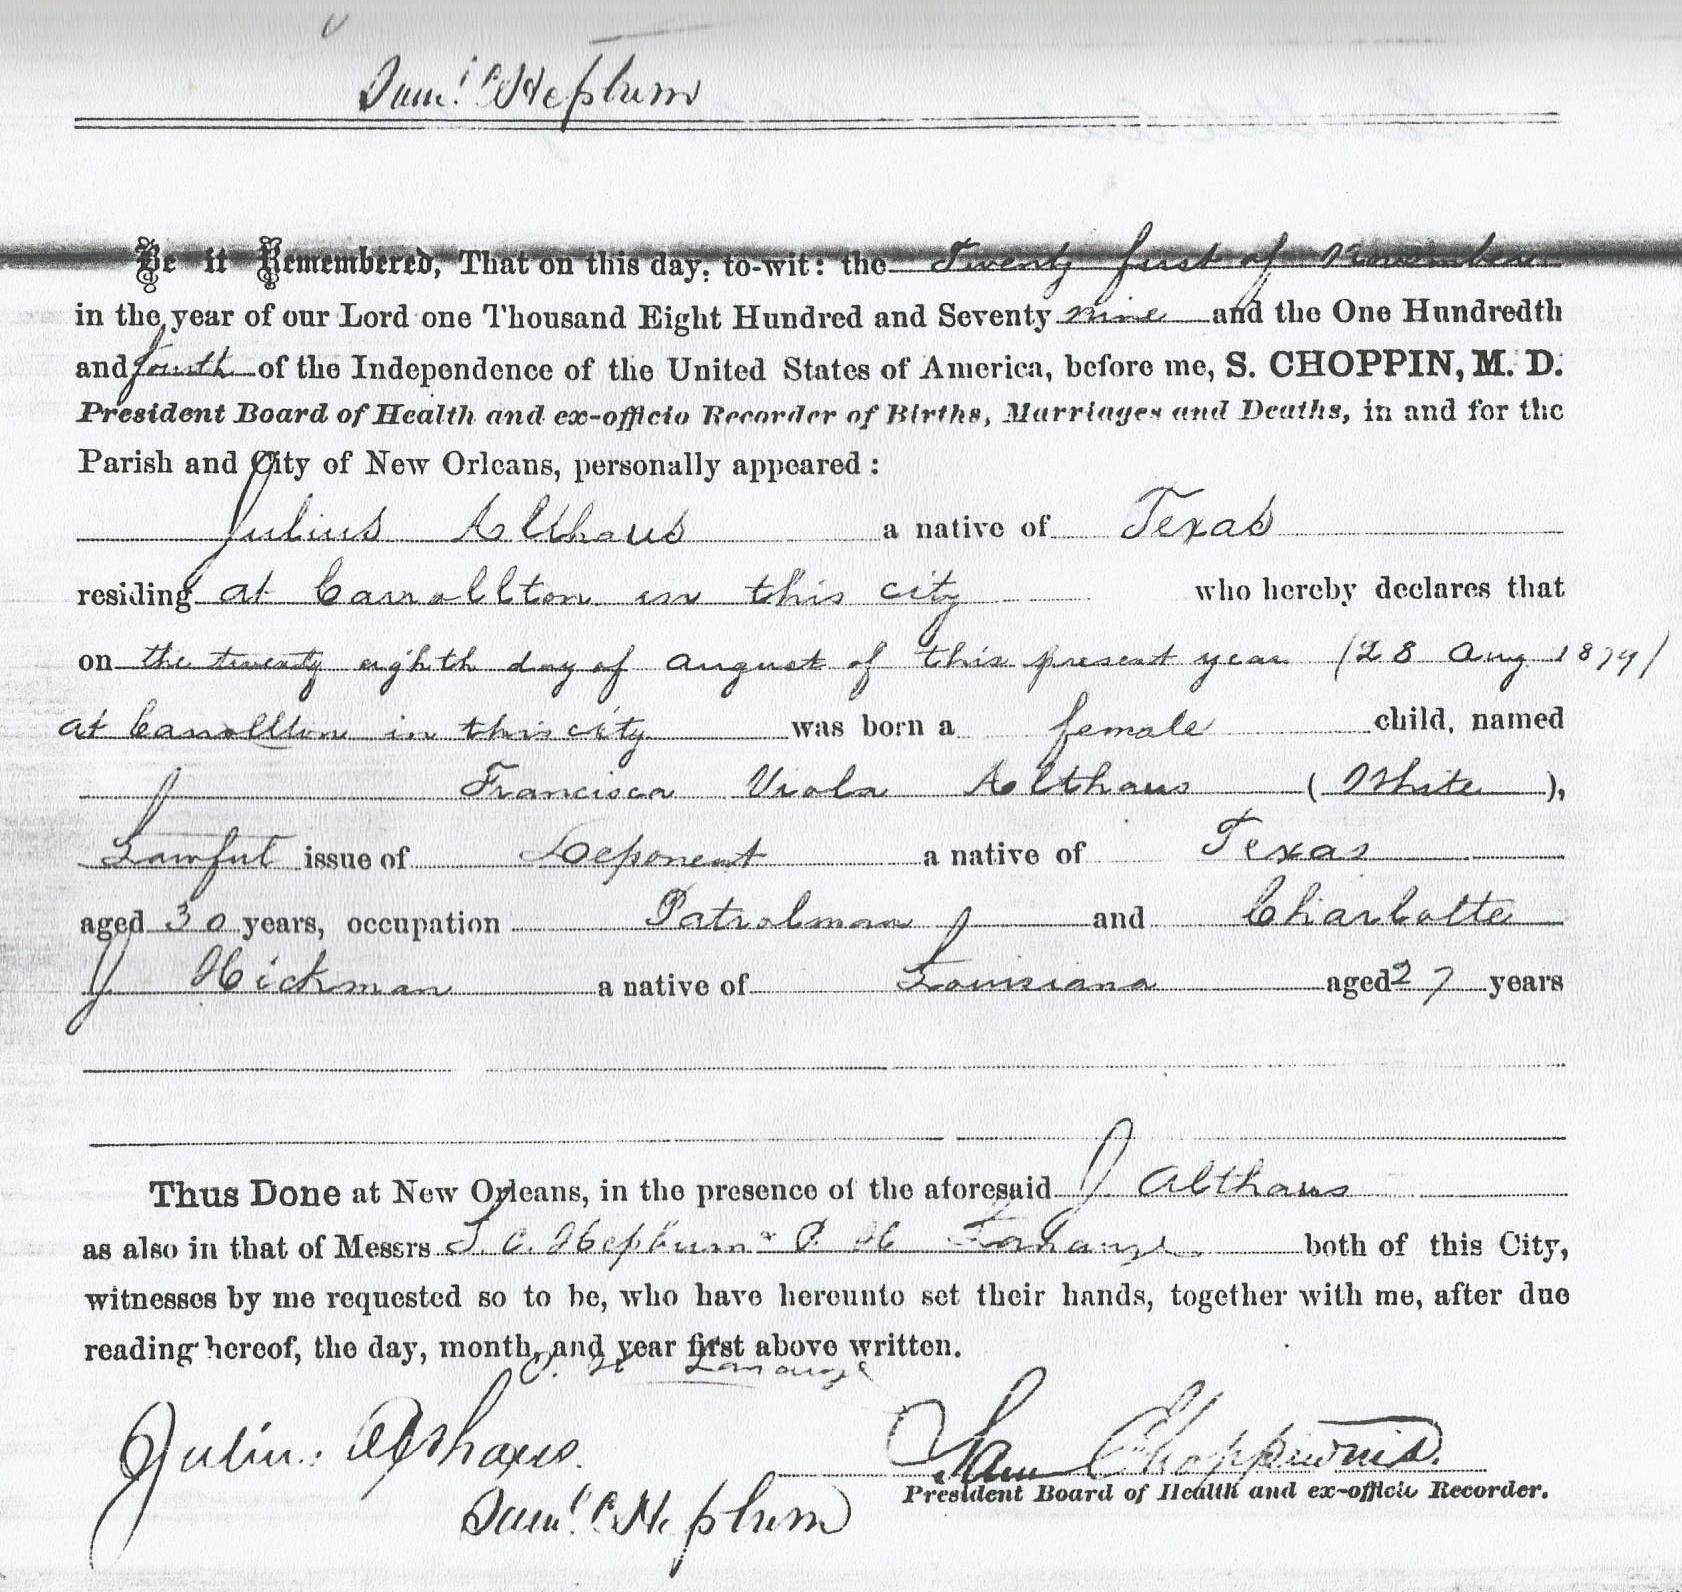 Saml. C Hepburn
Be it Remembered, That on this day, to-wit: the Twenty first of November
in the year of our Lord one Thousand Eight Hundred and Seventy nine and the One Hundredth
and fourth of the Independence of the United States of America, before me, S. CHOPPIN, M. D.
President Board of Health and ex-officio Recorder of Births, Marriages and Deaths, in and for the
Parish and City of New Orleans, personally appeared :
Julius Althaus a native of Texas
residing at Carrollton in this city who hereby declares that
on the twenty eighth day of august of this present year (28 Aug 1879)
at Carrollton in this city was born a female child, named
Francisca Viola Althaus ( White ),
Lawful issue of Deponent a native of Texas
aged 30 years, occupation Patrolman and Charlotte
J Hickman a native of Louisiana aged 27 years
Thus Done at New Orleans, in the presence of the aforesaid J. Althaus
as also in that of Messrs S. C. Hepburn & P. H both of this City,
witnesses by me requested so to be, who have hereunto set their hands, together with me, after due
reading hereof, the day, month, and year first above written.
P. H Lanauze
Julius Althaus.
Sam Choppin M.D.
President Board of Health and ex-officio Recorder.
Saml. C Hepburn